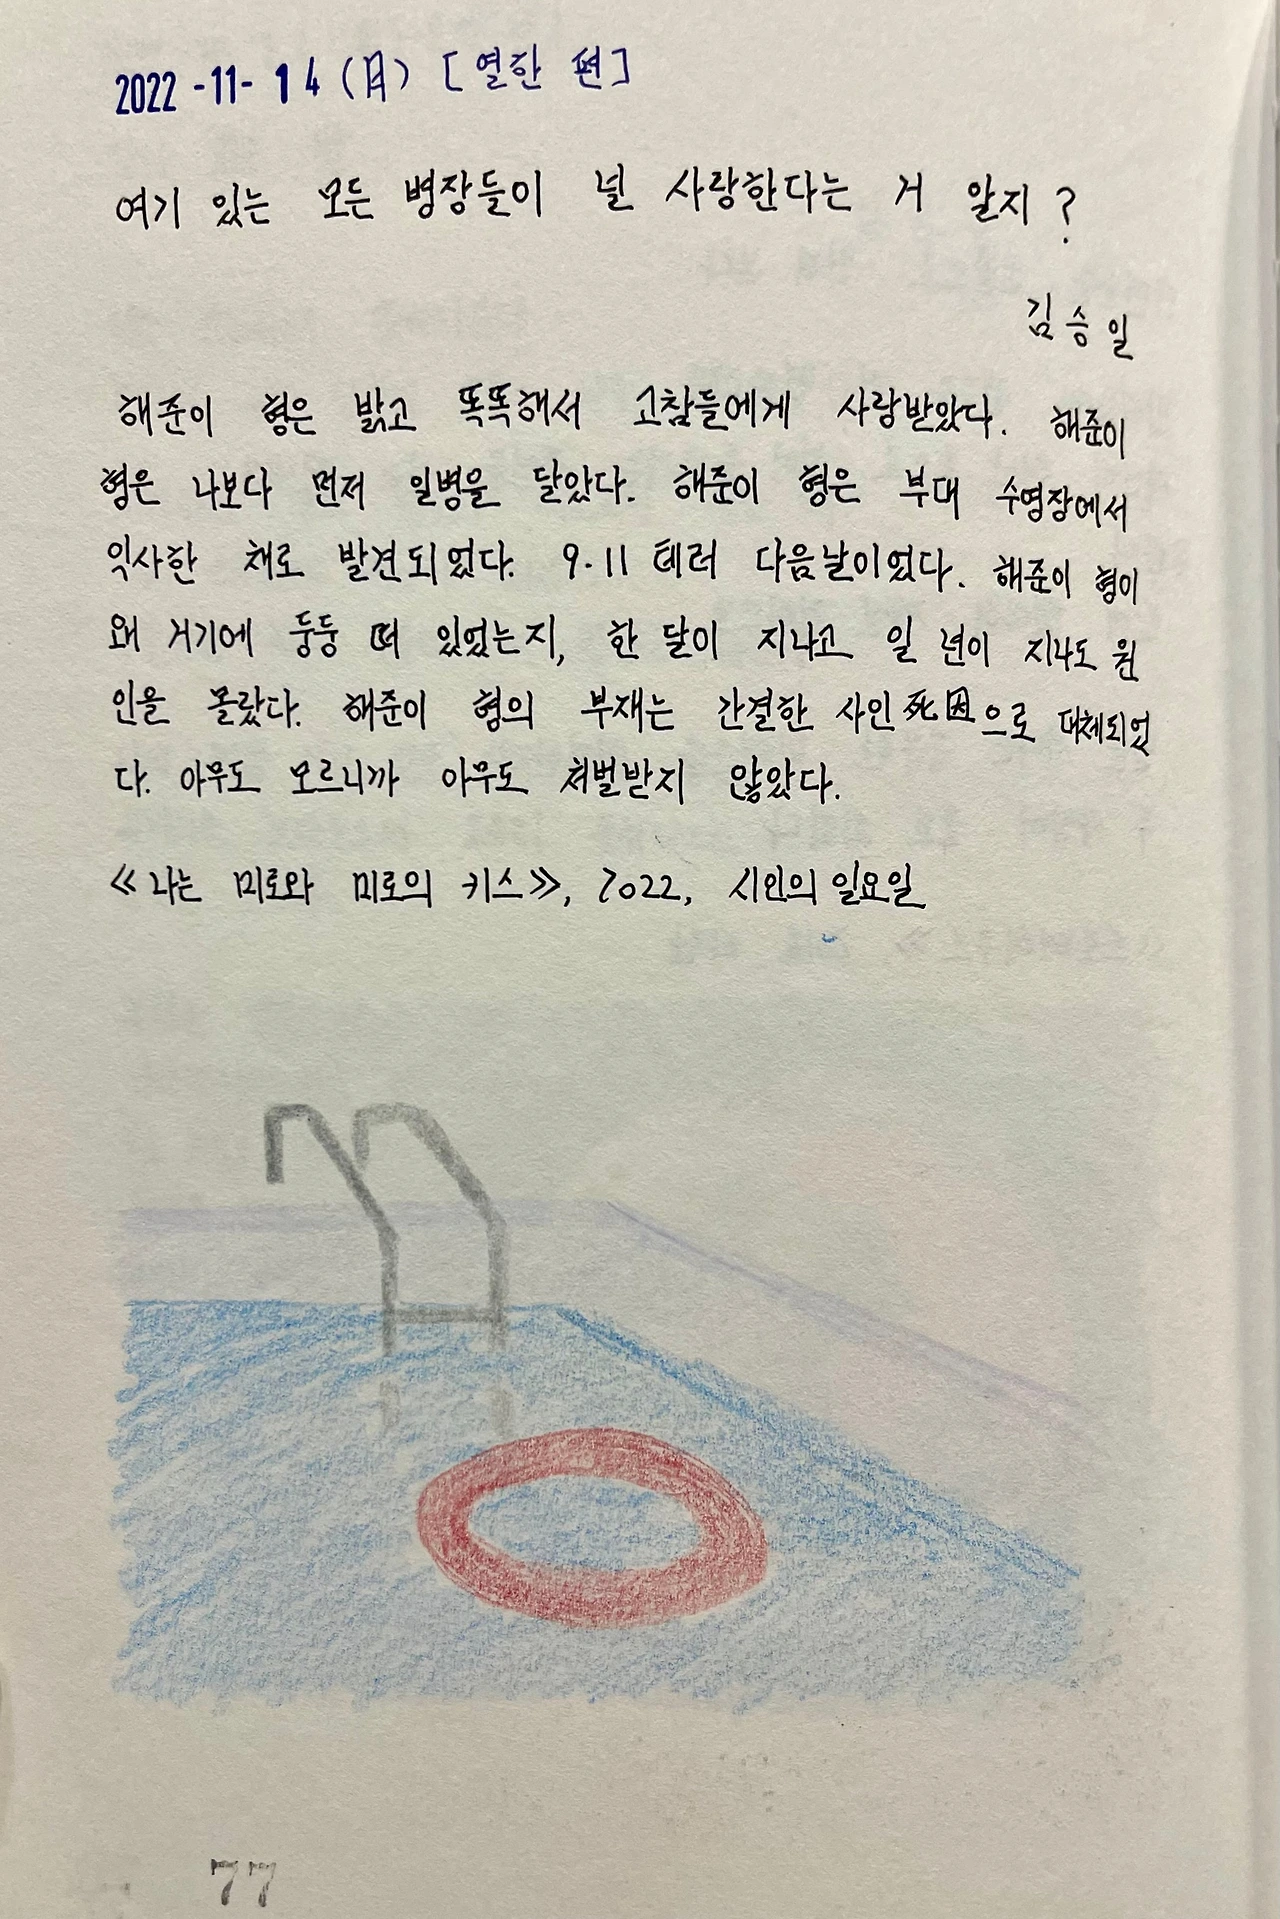 2022-11-14(月) [열한 편]
여기 있는 모든 병장들이 널 사랑한다는 거 알지?
김승일
해준이 형은 밝고 똑똑해서 고참들에게 사랑받았다. 해준이
형은 나보다 먼저 일병을 달았다. 해준이 형은 부대 수영장에서
익사한 채로 발견되었다. 9·11 테러 다음날이었다. 해준이 형이
왜 거기에 둥둥 떠 있었는지, 한 달이 지나고 일 년이 지나도 원
인을 몰랐다. 해준이 형의 부재는 간결한 사인死因으로 대체되었
다. 아무도 모르니까 아무도 처벌받지 않았다.
≪나는 미로와 미로의 키스≫, 2022, 시인의 일요일
77